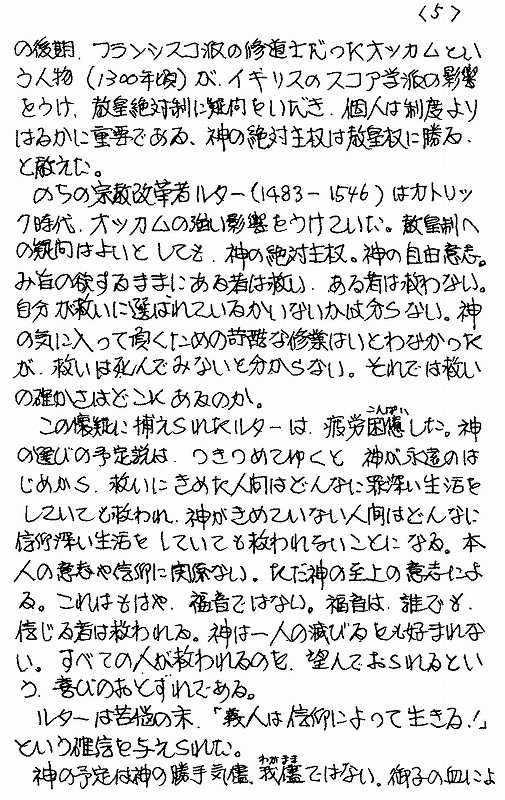 〈5〉
の後期、フランシスコ派の修道士だったオッカムとい
う人物(1300年頃)が、イギリスのスコア学派の影響
をうけ、教皇絶対制に疑問をいだき、個人は制度より
はるかに重要である、神の絶対主権は教皇権に勝る、
と教えた。
のちの宗教改革者ルター(1483-1546)はカトリッ
ク時代、オッカムの強い影響をうけていた。教皇制へ
の疑問はよいとしても、神の絶対主権。神の自由意志。
み旨の欲するままにある者は救い、ある者は救わない。
自分が救いに選ばれているかいないかは分らない。神
の気に入って頂くための苛酷な修業はいとわなかった
が、救いは死んでみないと分からない。それでは救い
の確かさはどこにあるのか。
この懐疑に捕えられたルターは、疲労困憊した。神
こんぱい
の選びの予定説は、つきつめてゆくと、神が永遠のは
じめから、救いにきめた人間はどんなに罪深い生活を
していても救われ、神がきめていない人間はどんなに
信仰深い生活をしていても救われないことになる。本
人の意志や信仰に関係ない。ただ神の至上の意志によ
る。これはもはや、福音ではない。福音は、誰でも、
信じる者は救われる。神は一人の滅びるをも好まれな
い。すべての人が救われるのを、望んでおられるとい
う、喜びのおとずれである。
ルターは苦悩の末、「義人は信仰によって生きる!」
という確信を与えられた。
わがまま
神の予定は神の勝手気儘、我儘ではない。御子の血によ